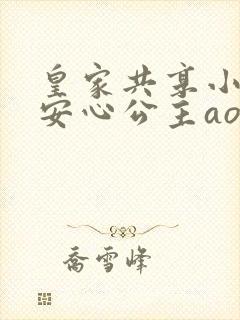 皇家共享小
安心公主ao
乔雪峰